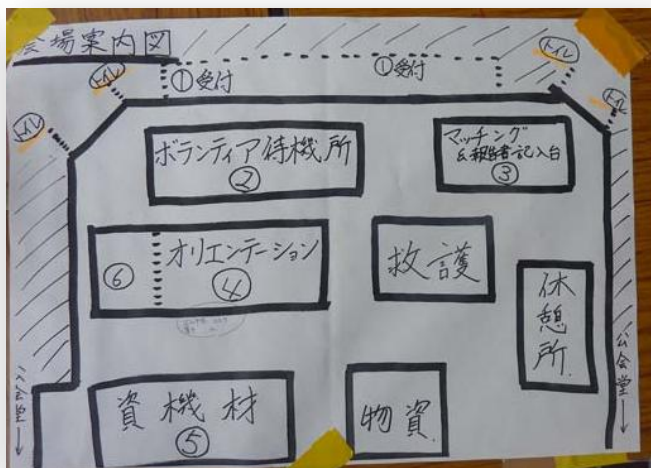 会場案内図
トイレ
トイレ
トイレ
①受付
①受付
ボランティア待機所
②
マッチング
&報告書記入台
③
⑥
オリエンテーション
④
救護
休憩所
資機材
⑤
物資
公会堂→